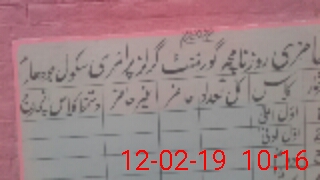 حاضری روزنامچہ گورنمنٹ گرلز پرائمری سکول
کلاس کل تعداد حاضر غیر حاضر دستخط کلاس ٹیچر
اول اعلیٰ
اول ادنیٰ
12-02-19 10:16